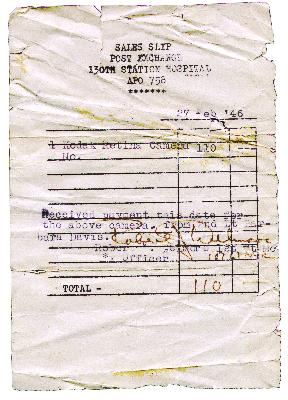 SALES SLIP
POST EXCHANGE
130TH STATION HOSPITAL
APO 758
*******
27 Feb '46
1 Kodak Retina Camera 110
No.
Received payment this date for
the above camera, from 2nd Lt
bara Davis.
Officer.
TOTAL - 110